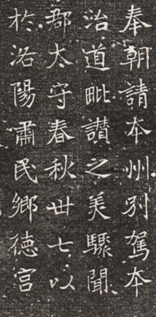 奉朝請本州別駕本
治道毗讃之美驟聞
郡太守春秋卌七以
於洛陽肅民鄉德宫